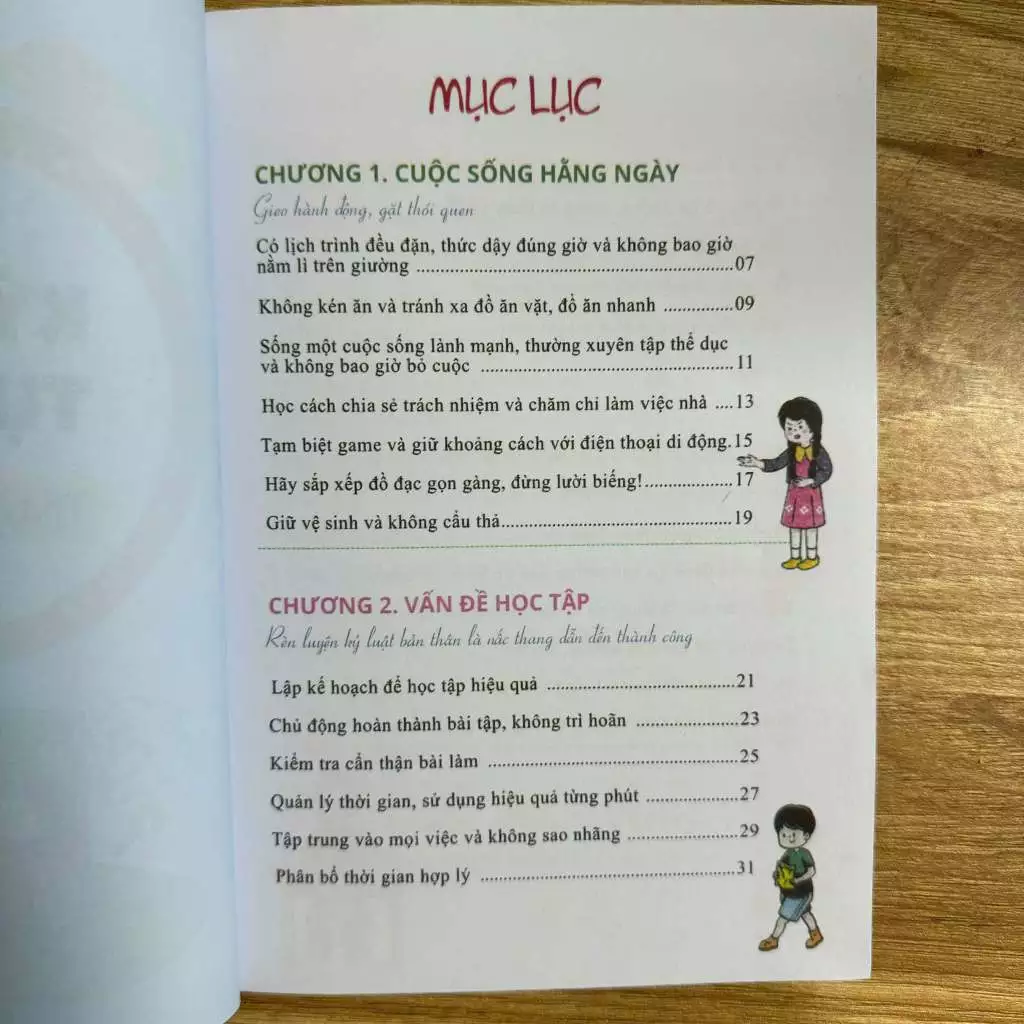 MỤC LỤC
CHƯƠNG 1. CUỘC SỐNG HẰNG NGÀY
Gieo hành động, gặt thói quen
Có lịch trình đều đặn, thức dậy đúng giờ và không bao giờ
nằm lì trên giường ..........07
Không kén ăn và tránh xa đồ ăn vặt, đồ ăn nhanh ..........09
Sống một cuộc sống lành mạnh, thường xuyên tập thể dục
và không bao giờ bỏ cuộc ..........11
Học cách chia sẻ trách nhiệm và chăm chỉ làm việc nhà ....13
Tạm biệt game và giữ khoảng cách với điện thoại di động.15
Hãy sắp xếp đồ đạc gọn gàng, đừng lười biếng!..........17
Giữ vệ sinh và không cẩu thả..........19
CHƯƠNG 2. VẤN ĐỀ HỌC TẬP
Rèn luyện kỷ luật bản thân là nấc thang dẫn đến thành công
Lập kế hoạch để học tập hiệu quả ..........21
Chủ động hoàn thành bài tập, không trì hoãn ..........23
Kiểm tra cẩn thận bài làm ..........25
Quản lý thời gian, sử dụng hiệu quả từng phút ..........27
Tập trung vào mọi việc và không sao nhãng ..........29
Phân bổ thời gian hợp lý ..........31